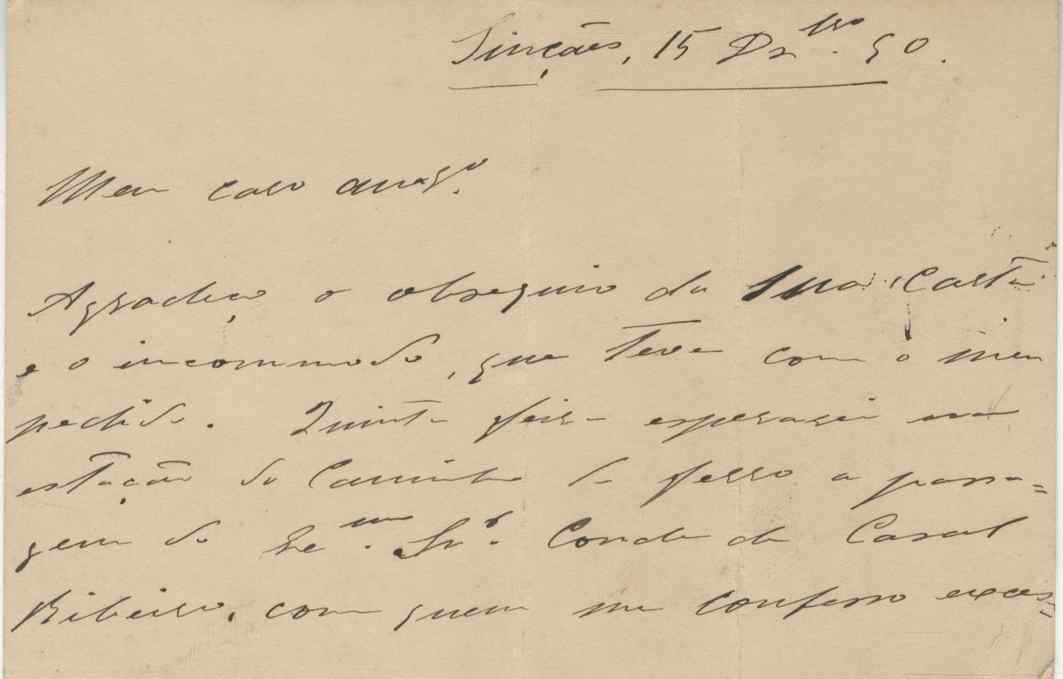 Sinções, 15 Dz.bro 90.
Meu caro amigo.
Agradeço o obsequio da sua carta
e o incommodo, que teve com o meu
pedido. Quinta feira esperarei na
estação do Caminho de ferro a passa=
gem do Ex.mo Snr. Conde de Casal
Ribeiro, com quem me confesso exces=